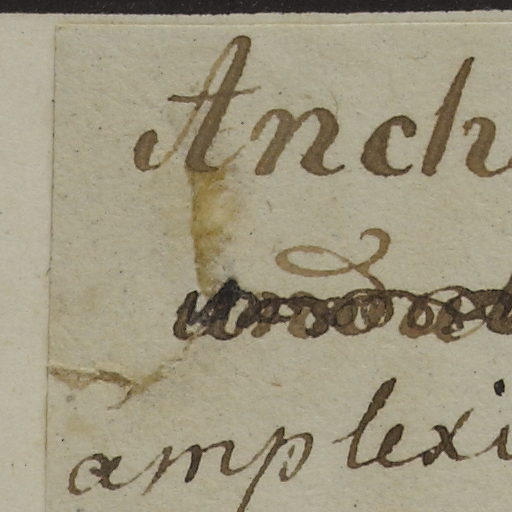 Anch
amplexi